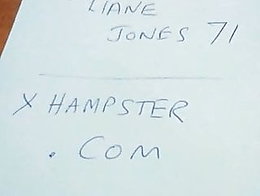 LIANE
JONES 71
X HAMPSTER
.COM